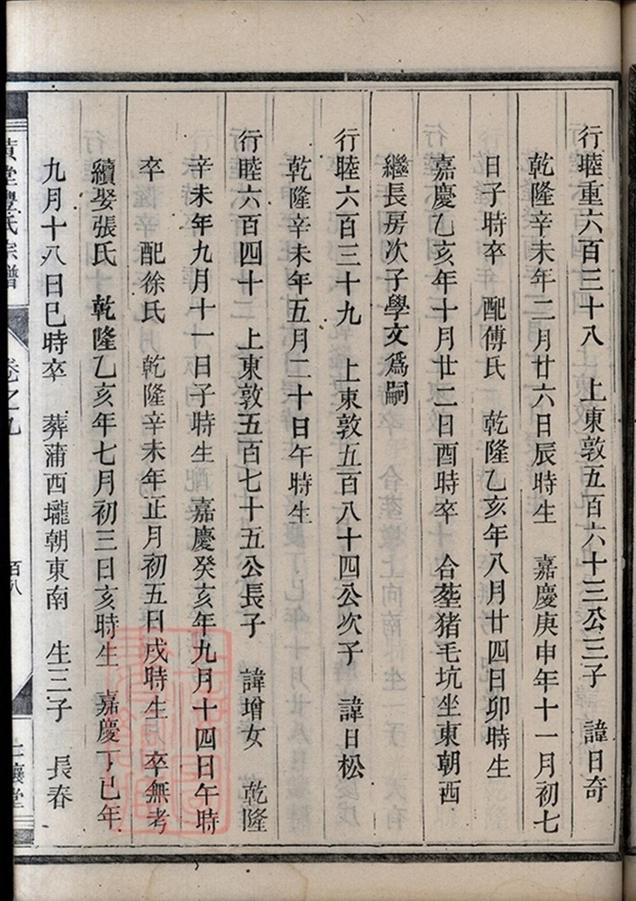 行睦重六百三十八　上東敦五百六十三公三子　諱日奇
乾隆辛未年二月廿六日辰時生　嘉慶庚申年十一月初七
日子時卒　配傅氏　乾隆乙亥年八月廿四日卯時生
嘉慶乙亥年十月廿二日酉時卒　合塟猪毛坑坐東朝西
繼長房次子學文爲嗣
行睦六百三十九　上東敦五百八十四公次子　諱日松
乾隆辛未年五月二十日午時生
行睦六百四十　上東敦五百七十五公長子　諱增女　乾隆
辛未年九月十一日子時生　嘉慶癸亥年九月十四日午時
卒　配徐氏　乾隆辛未年正月初五日戌時生　卒無考
續娶張氏　乾隆乙亥年七月初三日亥時生　嘉慶丁巳年
九月十八日巳時卒　葬蒲西壠朝東南　生三子　長春
黃堂豐氏宗譜　卷之九　百八　仁讓堂